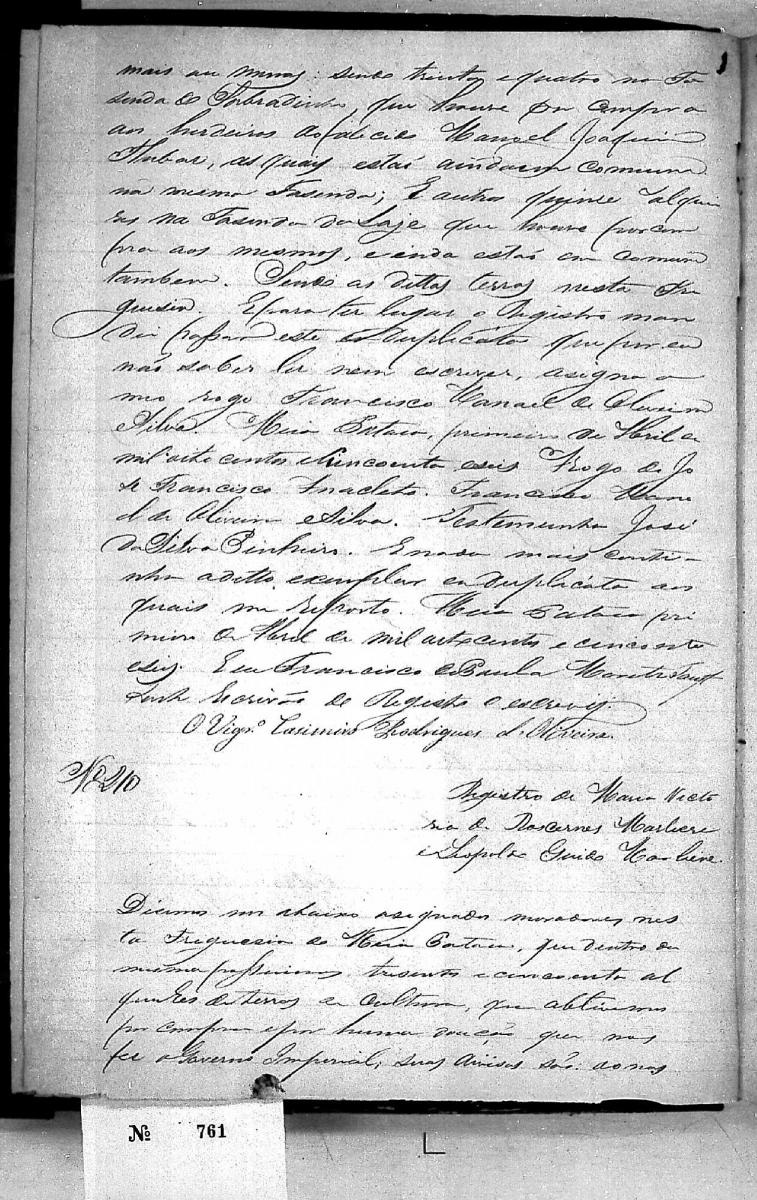 mais ou menos: sendo trinta e quatro na Fa
senda do Sobradinho, que houve por compra
aos herdeiros do falecido Manoel Joaquim
as quais estaõ ainda em commum
na mesma Fasenda; E outros quinse alquei
res na Fasenda da Laje que houve por com
pra aos mesmos, e inda estaõ em commum
tambem. Sendo as dittas terras nesta Fre
guesia. E para ter lugar o Registro man
dei passar este em duplicata que por eu
naõ saber ler nem escrever, asigna a
meu rogo Francisco Manoel de Oliveira
e Silva. Meia Pataca, primeiro de Abril de
mil oito centos e cincoenta e seis. Arogo de Jo
se Francisco Anacleto. Francisco Mano
el de Oliveira e Silva. Testemunha José
da Silva Pinheiro. E nada mais conti
nha o ditto exemplar em duplicata aos
quais me reporto. Meia Pataca pri
meiro de Abril de mil oito centos e cincoenta
e seis. E eu Francisco de Paula
Escrivaõ do Registo o escrevy.
O Vigr.º Casimiro Rodrigues d'Oliveira.
Nº 210
Registro de Maria Victo
ria de Marliere
e Leopoldo Guido Marliere.
Disemos nos abaixo asignados moradores nes
ta Freguesia do Meia Pataca, que dentro da
mesma possuimos tresentos e cincoenta al
queires de terras de Cultura, que obtivemos
por compra e por huma doação que nos
fez o Governo Imperial; suas divisas são: do nas
Nº 761